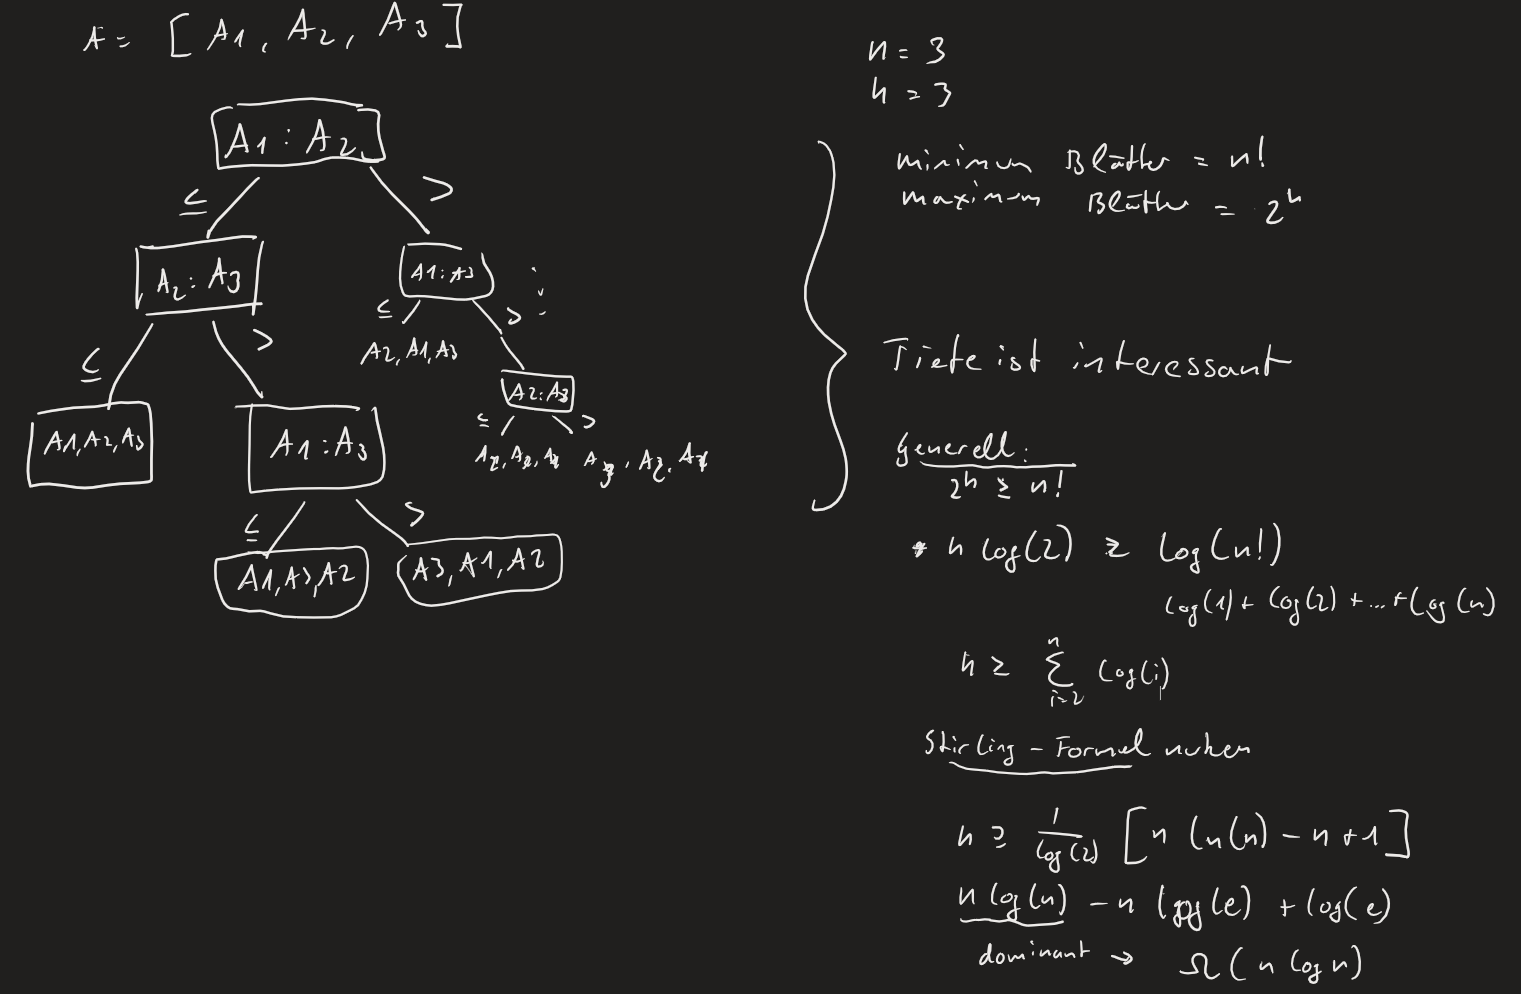 A = [A1, A2, A3]
A1 : A2
≤ >
A2 : A3
A1 : A3
≤ >
≤ >
A2, A1, A3
A1, A2, A3
A1 : A3
A2 : A3
≤ >
A3, A2, A1
≤ >
A1, A3, A2
A3, A1, A2
n = 3
h = 3
minimum Blätter = n!
maximum Blätter = 2^h
Tiefe ist interessant
Generell:
2^h ≥ n!
* h log(2) ≥ log(n!)
log(1) + log(2) + ... + log(n)
h ≥ ∑_{i=2}^{n} log(i)
Stirling - Formel nutzen
h ≥ 1/log(2) [n ln(n) - n + 1]
n log(n) - n log(e) + log(e)
dominant → Ω(n log n)